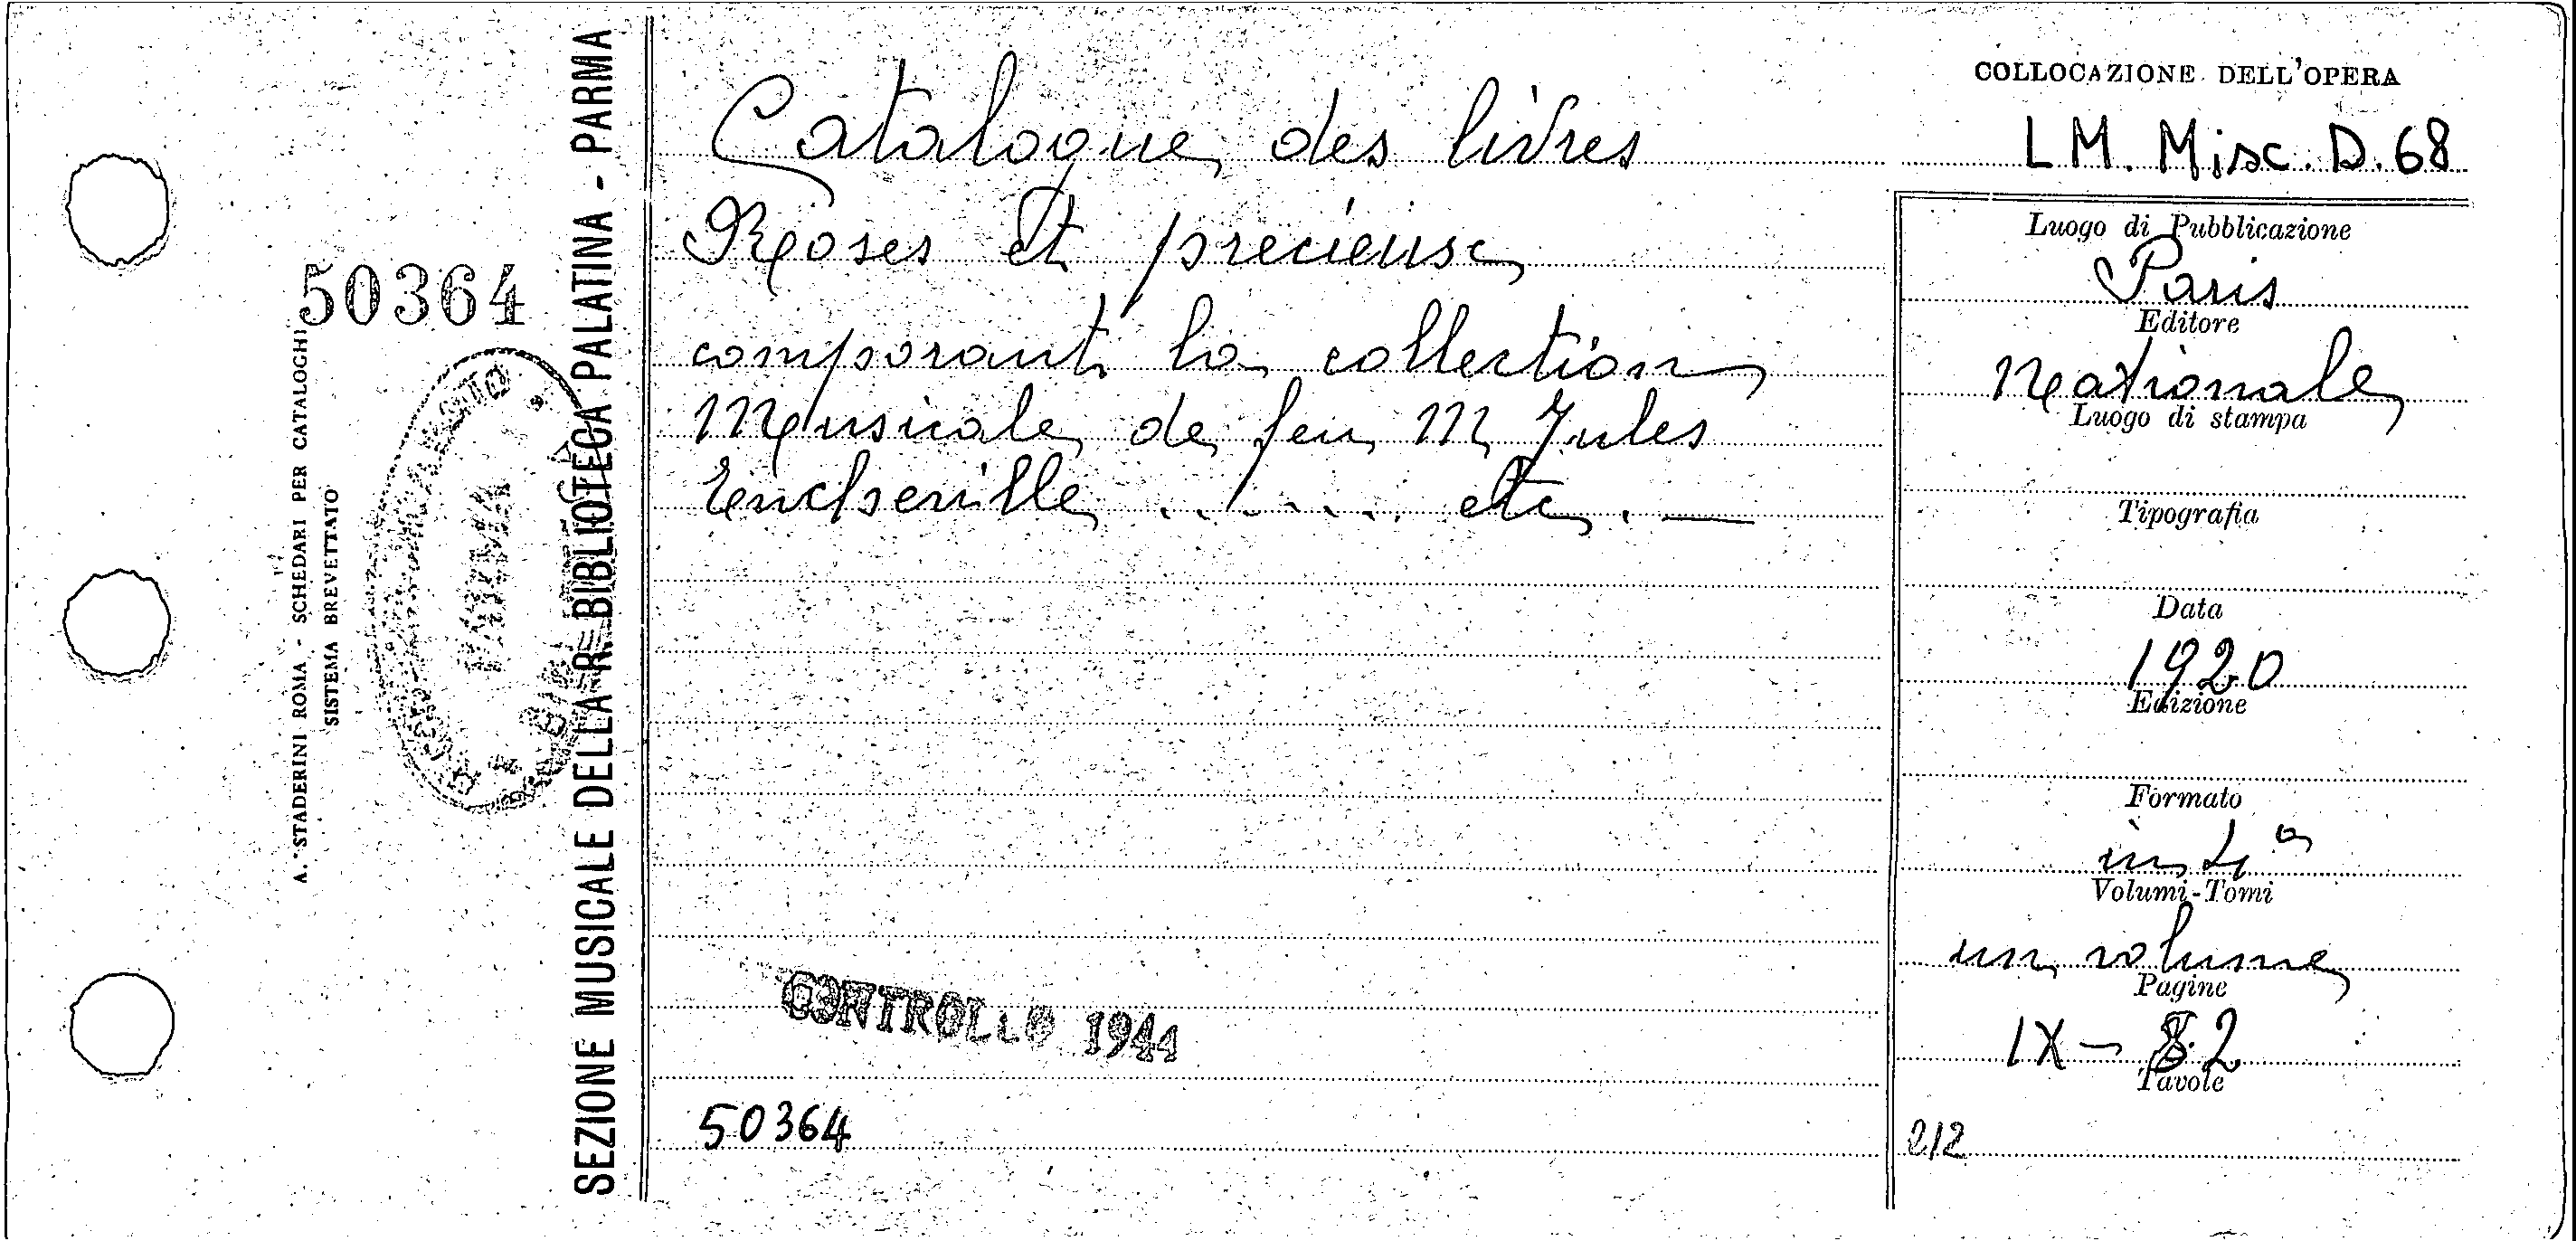 COLLOCAZIONE DELL'OPERA
LM. Misc. D. 68
Catalogue des livres
Roses et precieuse
composant la collection
Musicale de feu M Jules
........ etc. —
Luogo di Pubblicazione
Paris
Editore
Nationale
Luogo di stampa
Tipografia
Data
1920
Edizione
Formato
in 4°
Volumi-Tomi
un volume
Pagine
IX - 82
Tavole
212
CONTROLLO 1944
50364
50364
A. STADERINI ROMA - SCHEDARI PER CATALOGHI
SISTEMA BREVETTATO
PARMA
SEZIONE MUSICALE DELLA R. BIBLIOTECA PALATINA - PARMA